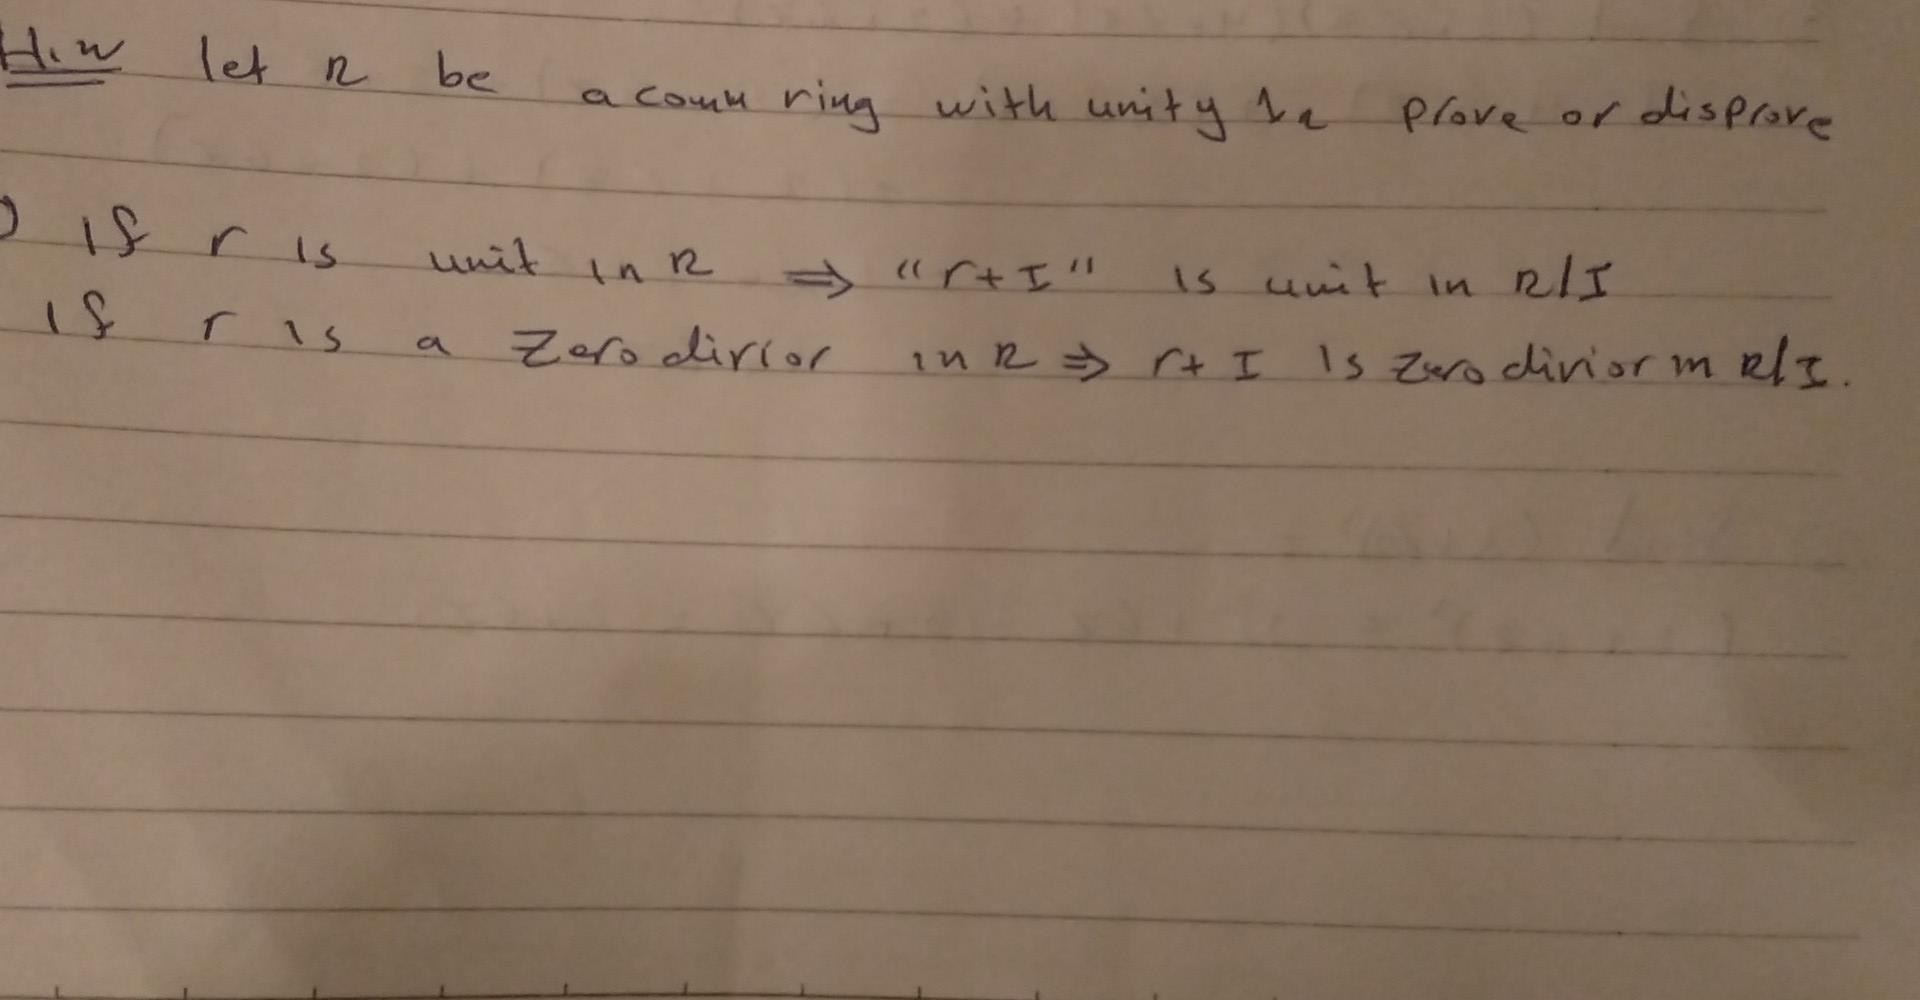 H.w let R be a comm ring with unity 1R prove or disprove
) if r is unit in R ⇒ "r+I" is unit in R/I
if r is a zero divisor in R ⇒ r+I is zero divisor in R/I.